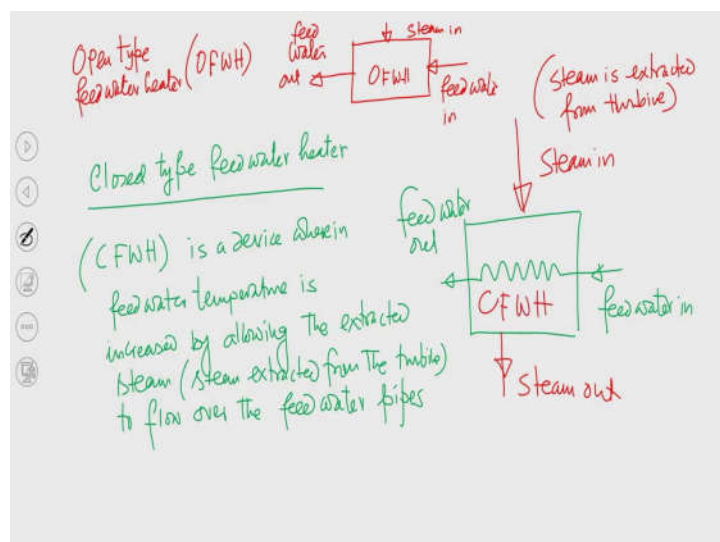 Open type
feedwater heater (OFWH)
feed
water
out
steam in
OFWH
feedwate
in
(steam is extracted
from turbine)
Steam in
Closed type feedwater heater
(CFWH) is a device wherein
feedwater temperature is
increased by allowing the extracted
steam (steam extracted from the turbine)
to flow over the feedwater pipes
feedwater
out
CFWH
feedwater in
Steam out